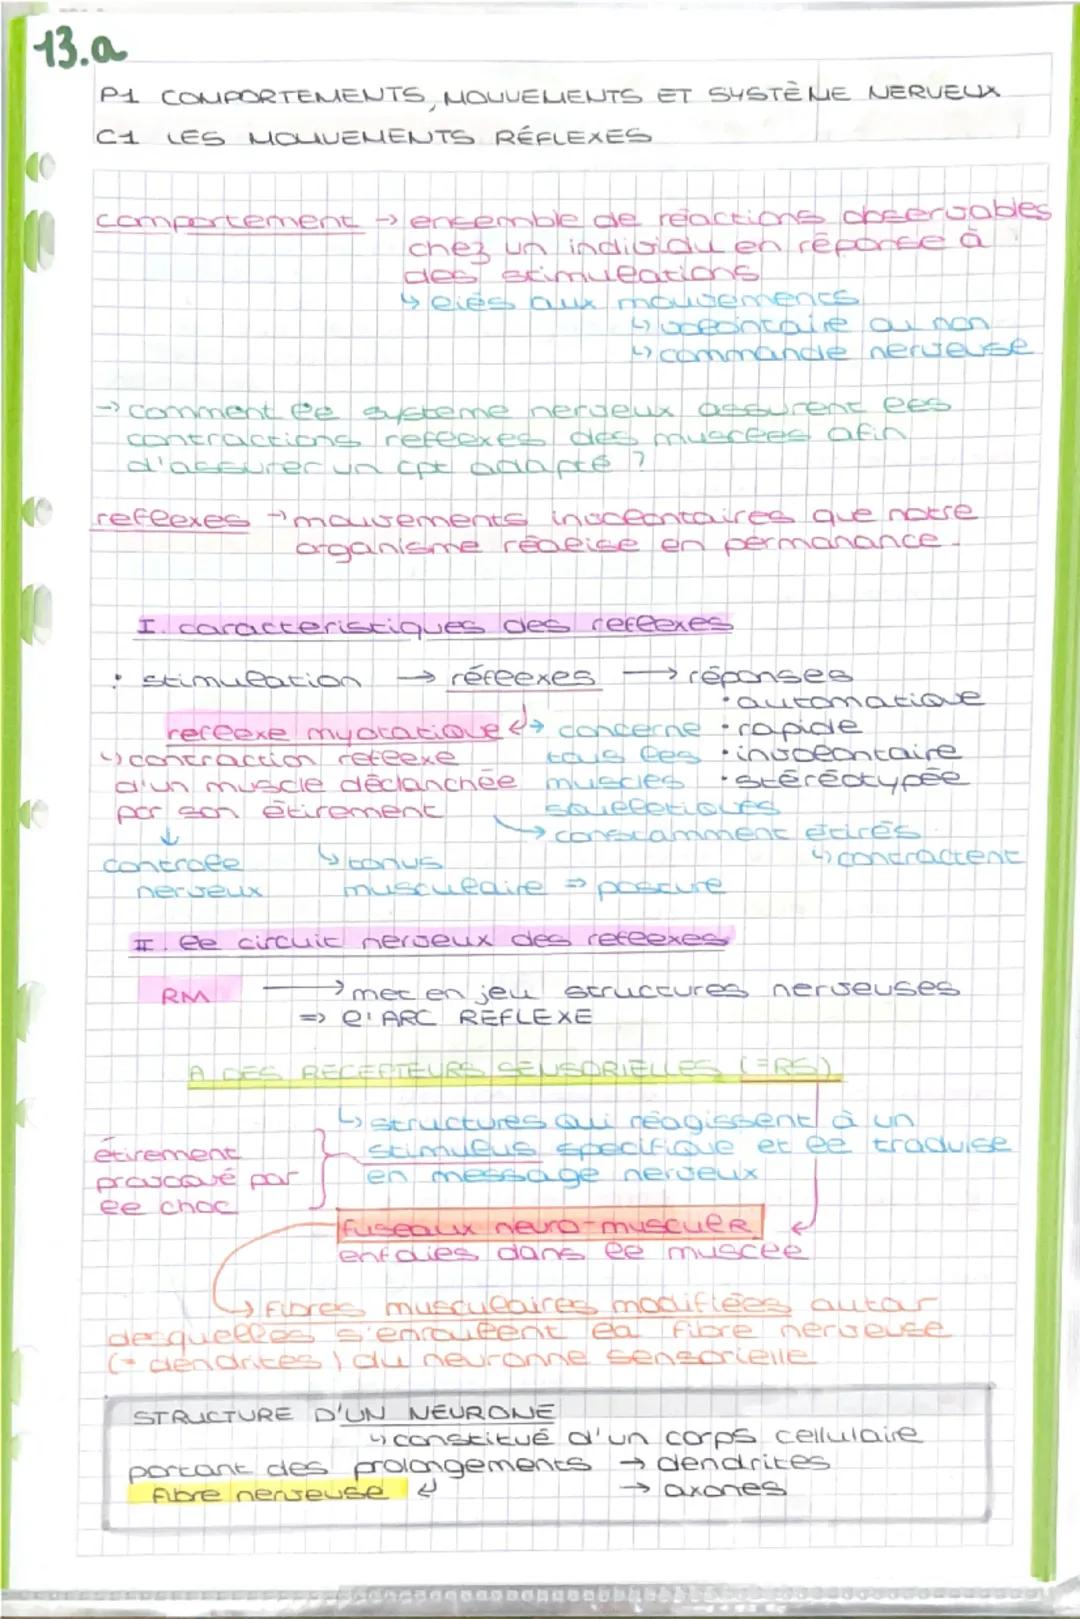 13.a
P1 COMPORTEMENTS, MOUVEMENTS ET SYSTÈME NERVEUX
C1 LES MOUVEMENTS RÉFLEXES
comportement → ensemble de réactions observables
chez un individu en réponse à
des stimulations
↳ liés aux mouvements
↳ volontaire ou non
↳ commande nerveuse
→ comment le système nerveux assurent les
contractions réflexes des muscles afin
d'assurer un cpt adapté ?
reflexes → mouvements involontaires que notre
organisme réalise en permanance.
I. caracteristiques des reflexes
• stimulation → réflexes → réponses
• automatique
reflexe myotatique ↲→ concerne • rapide
↳ contraction reflexe tous les • involontaire
d'un muscle déclanchée muscles • stéréotypée
par son étirement squelettiques
↓ → constamment étirés
controle ↳ tonus ↳ contractent
nerveux musculaire ⇒ posture
II. le circuit nerveux des reflexes
RM → met en jeu structures nerveuses
⇒ l'ARC REFLEXE
A DES RECEPTEURS SENSORIELLES (=RS)
↳ structures qui réagissent à un
étirement stimulus specifique et le traduise
provoqué par en message nerveux
le choc
fuseaux neuro-musculER
enfouies dans le muscle
↳ fibres musculaires modifiées autour
desquelles s'enroulent la fibre nerveuse
(= dendrites) du neuronne sensorielle
STRUCTURE D'UN NEURONE
↳ constitué d'un corps cellulaire
portant des prolongements → dendrites
fibre nerveuse ↲ → axones